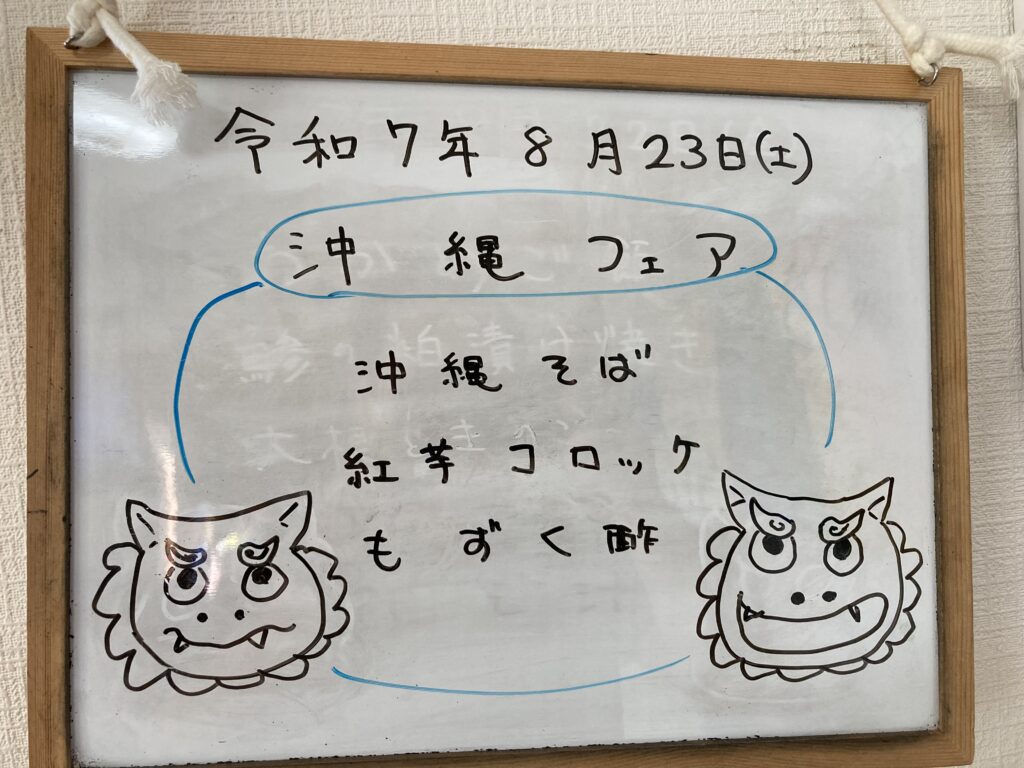 令和7年8月23日(土)
沖縄フェア
沖縄そば
紅芋コロッケ
もずく酢